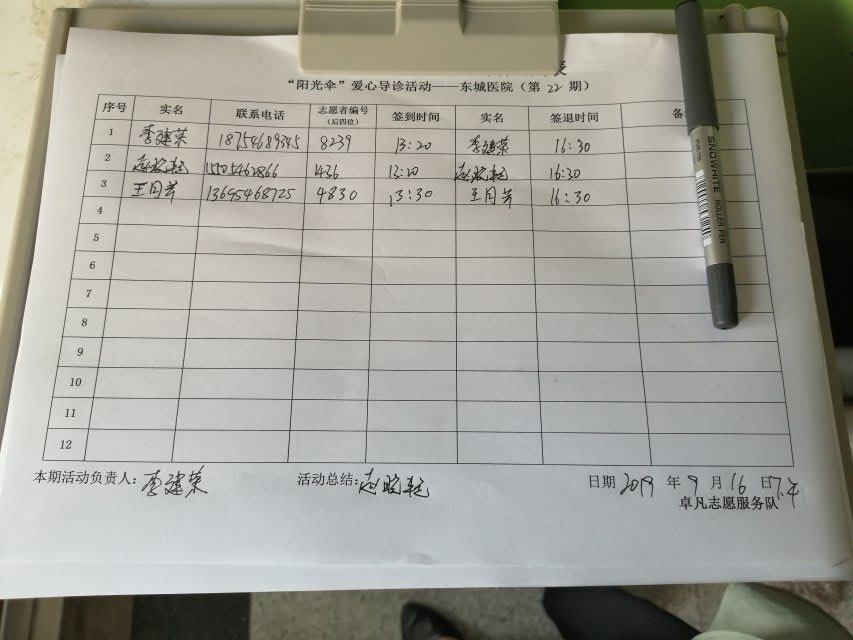 “阳光伞”爱心导诊活动——东城医院（第 22 期）
序号 实名 联系电话 志愿者编号（后四位） 签到时间 实名 签退时间 备
1 李建荣 18754689345 8239 13:20 李建荣 16:30
2 1505462866 1436 13:20 16:30
3 13695468725 4830 13:30 16:30
4
5
6
7
8
9
10
11
12
本期活动负责人：李建荣 活动总结： 日期 2019 年 9 月 16 日
卓凡志愿服务队
SNOWHITE ROLLER PEN